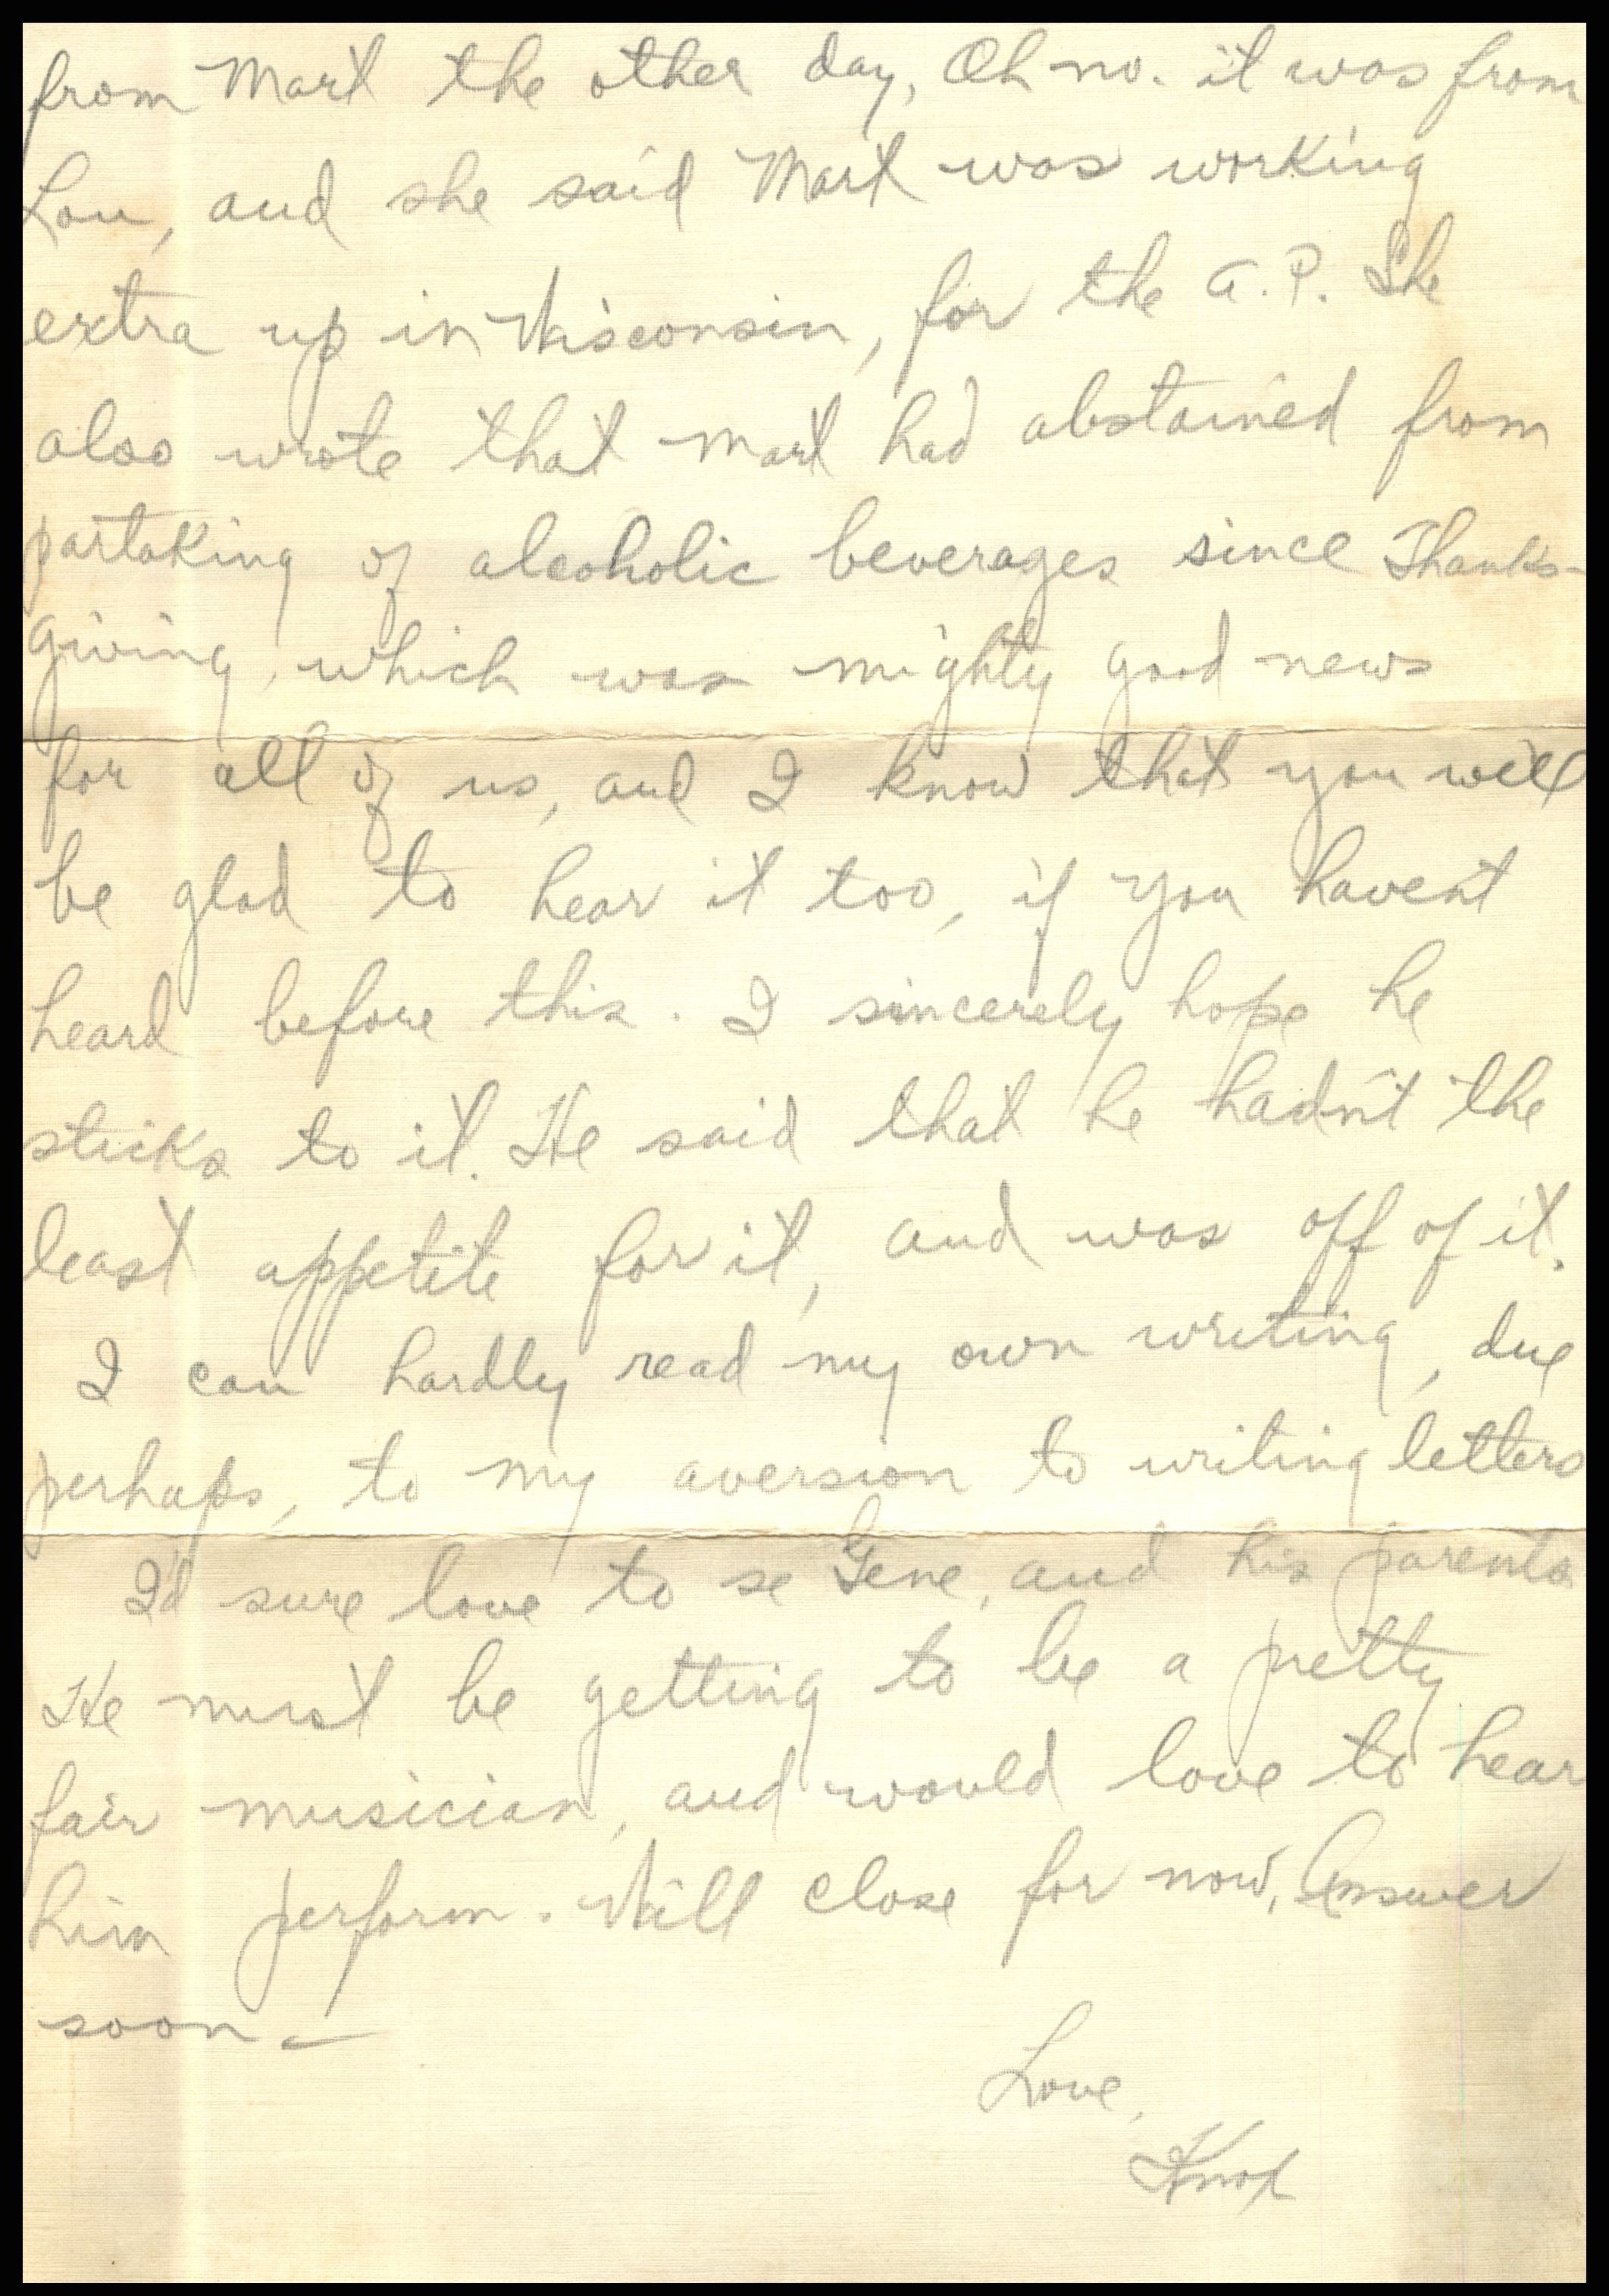 from Mart the other day, Oh no. it was from
Lou, and she said Mart was working
extra up in Wisconsin, for the A.P. She
also wrote that Mart had abstained from
partaking of alcoholic beverages since Thanks-
giving, which was mighty good news
for all of us, and I know that you will
be glad to hear it too, if you havent
heard before this. I sincerely hope he
sticks to it. He said that he hadn't the
least appetite for it, and was off of it.
I can hardly read my own writing, due
perhaps, to my aversion to writing letters
I'd sure love to se Gene, and his parents
He must be getting to be a pretty
fair musician, and would love to hear
him perform. Will close for now, Answer
soon —
Love,
Knox